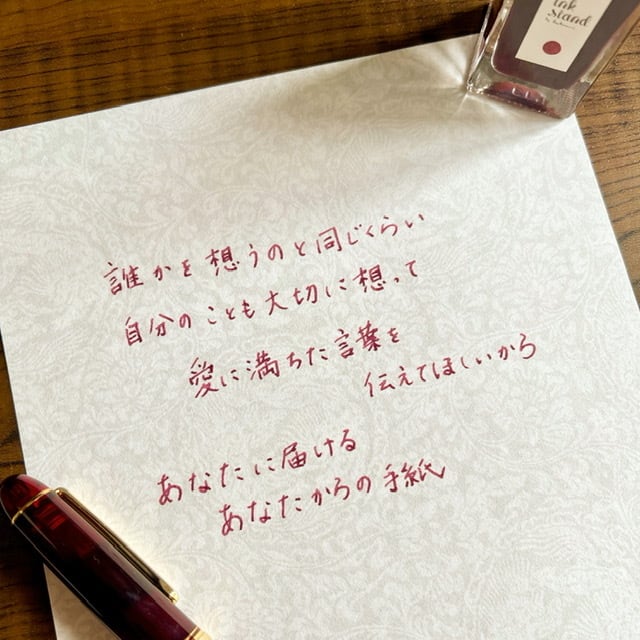 ink
Stand
誰かを想うのと同じくらい
自分のことも大切に想って
愛に満ちた言葉を
伝えてほしいから
あなたに届ける
あなたからの手紙